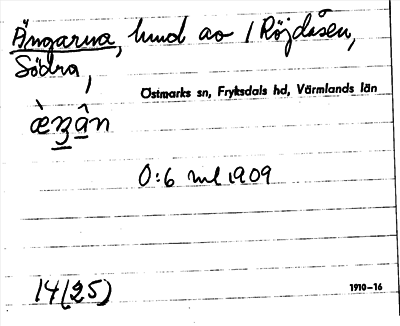 Ängarna, hmd av 1 Röjdåsen,
Södra,
Östmarks sn, Fryksdals hd, Värmlands län
0:6 ml 1909
14(25)
1910-16